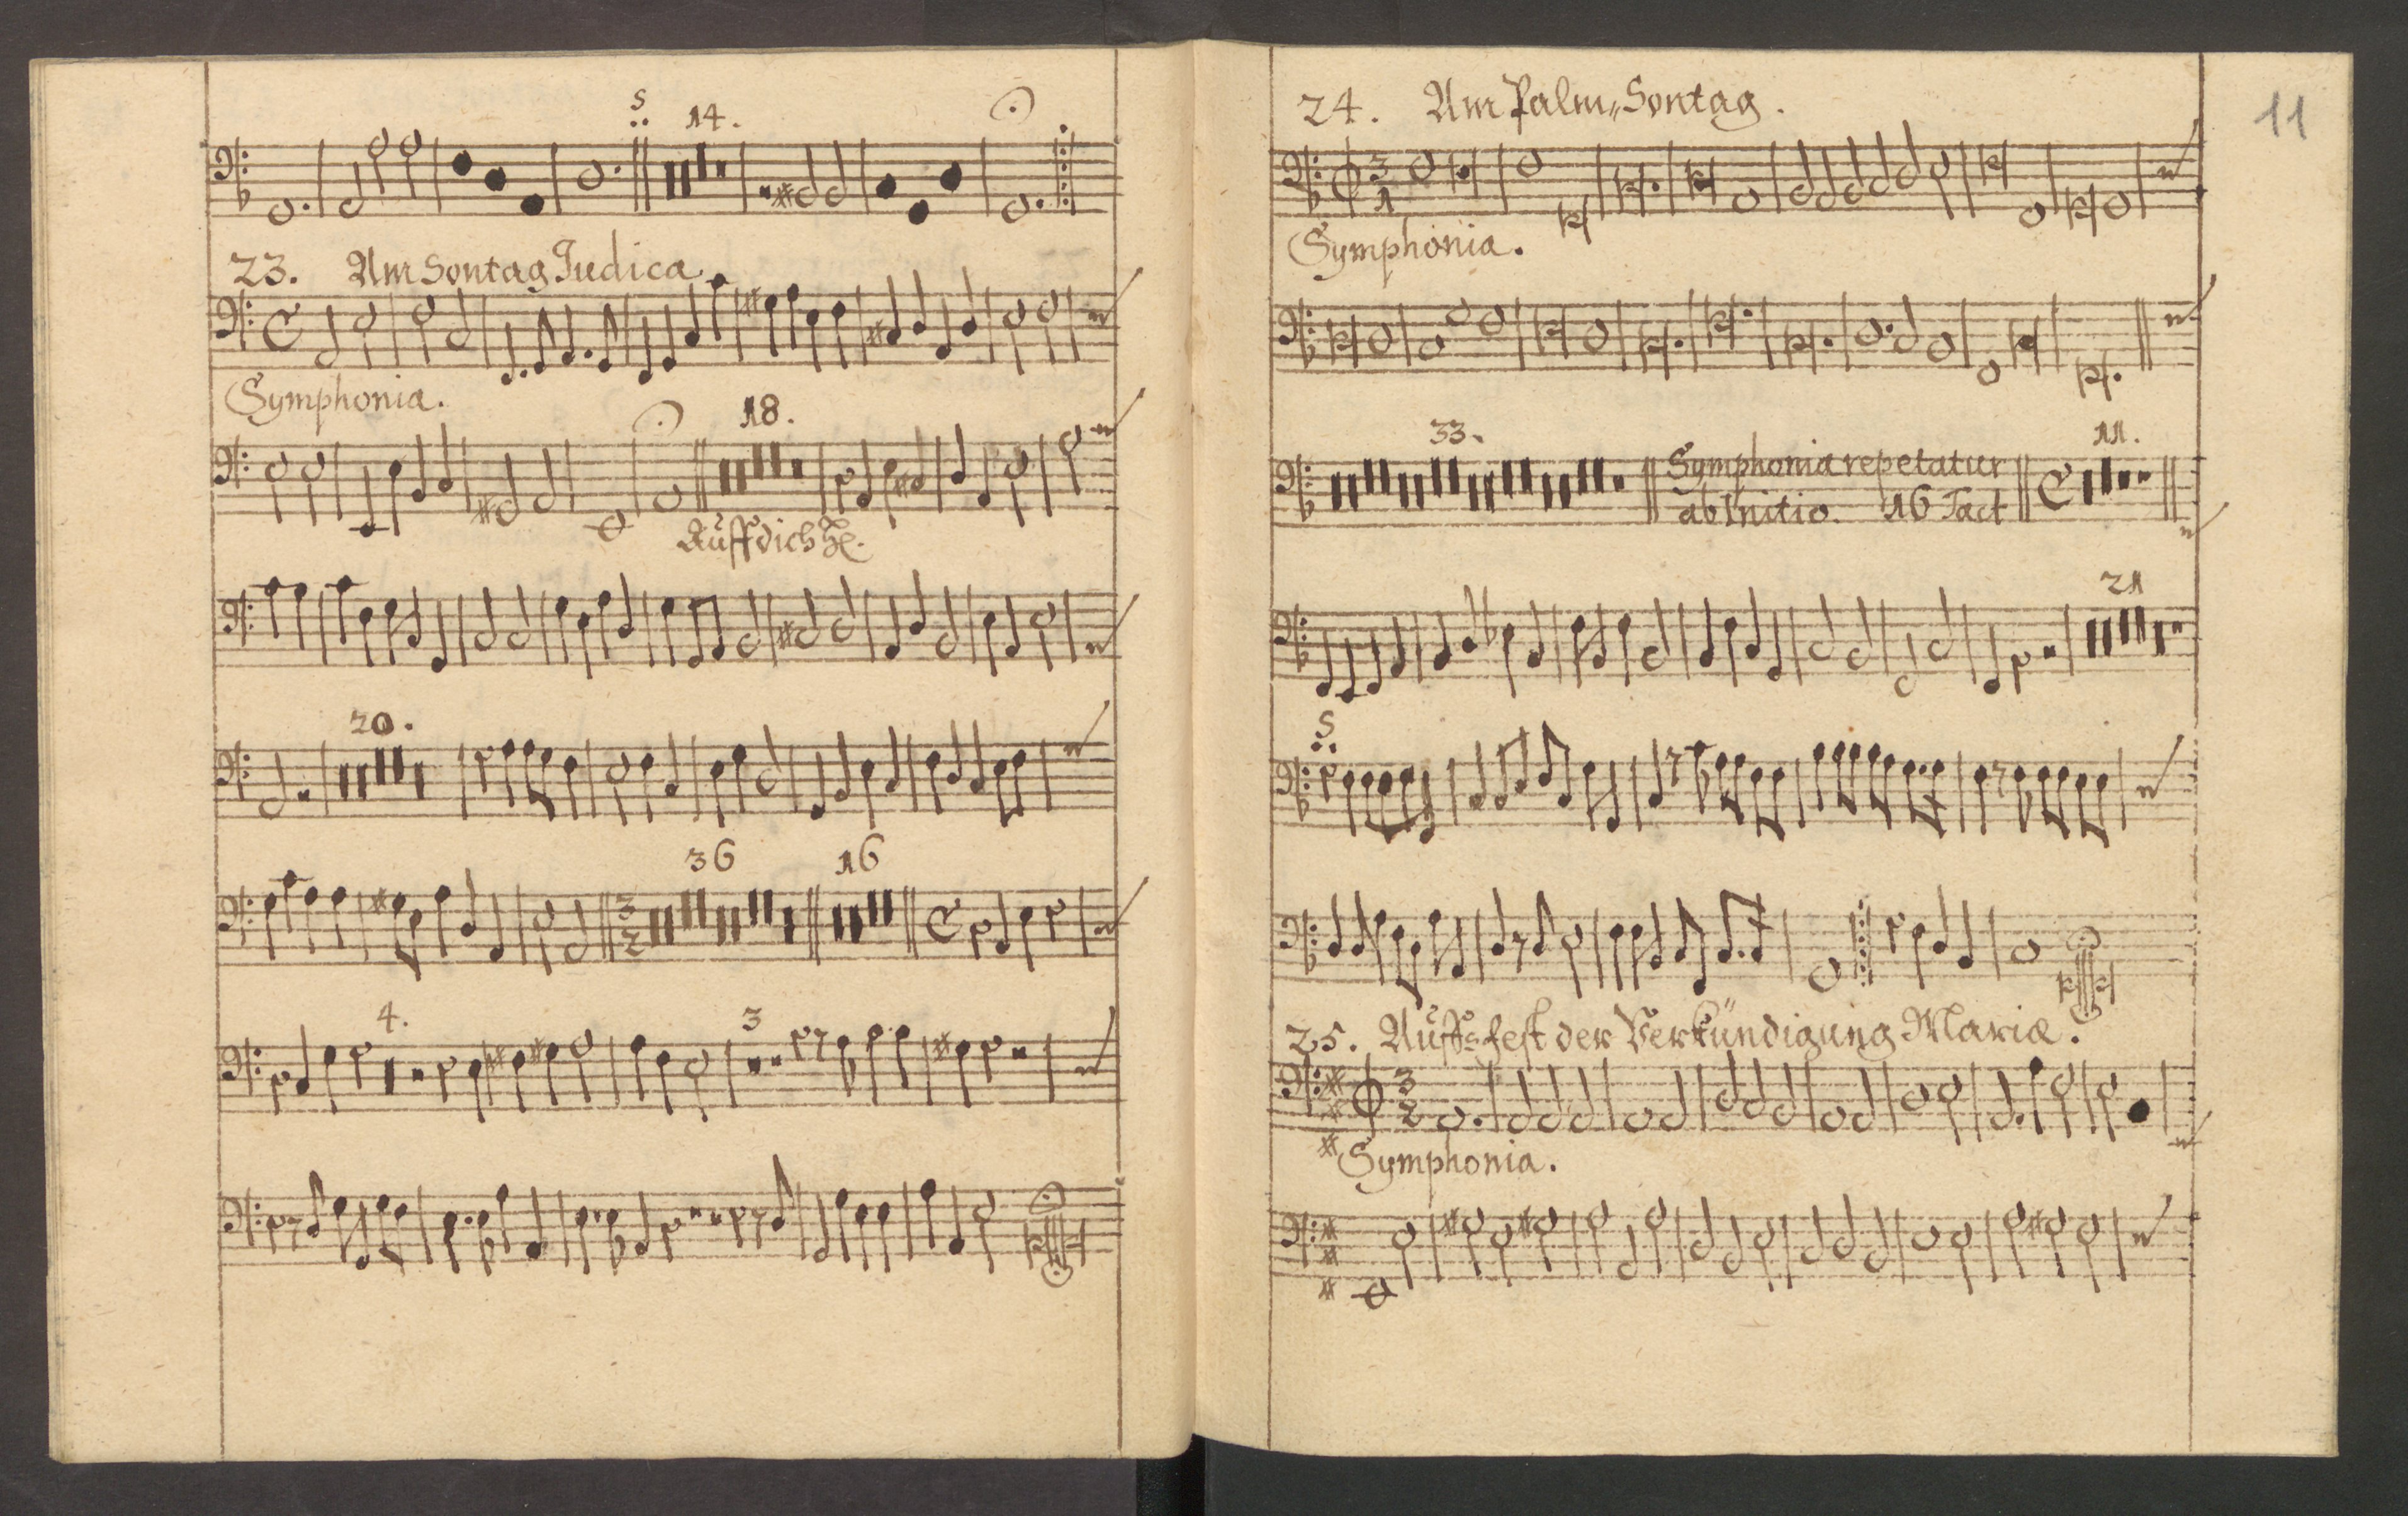 S
14.
23. Am Sontag Judica
Symphonia.
18.
Auff dich
20.
36
16
4.
3
11
24. Am Palm„Sontag.
Symphonia.
33.
11.
Symphonia repetatur
ab Initio. 16 Tact
21
S
25. Auffs fest der Verkündigung Mariæ.
Symphonia.